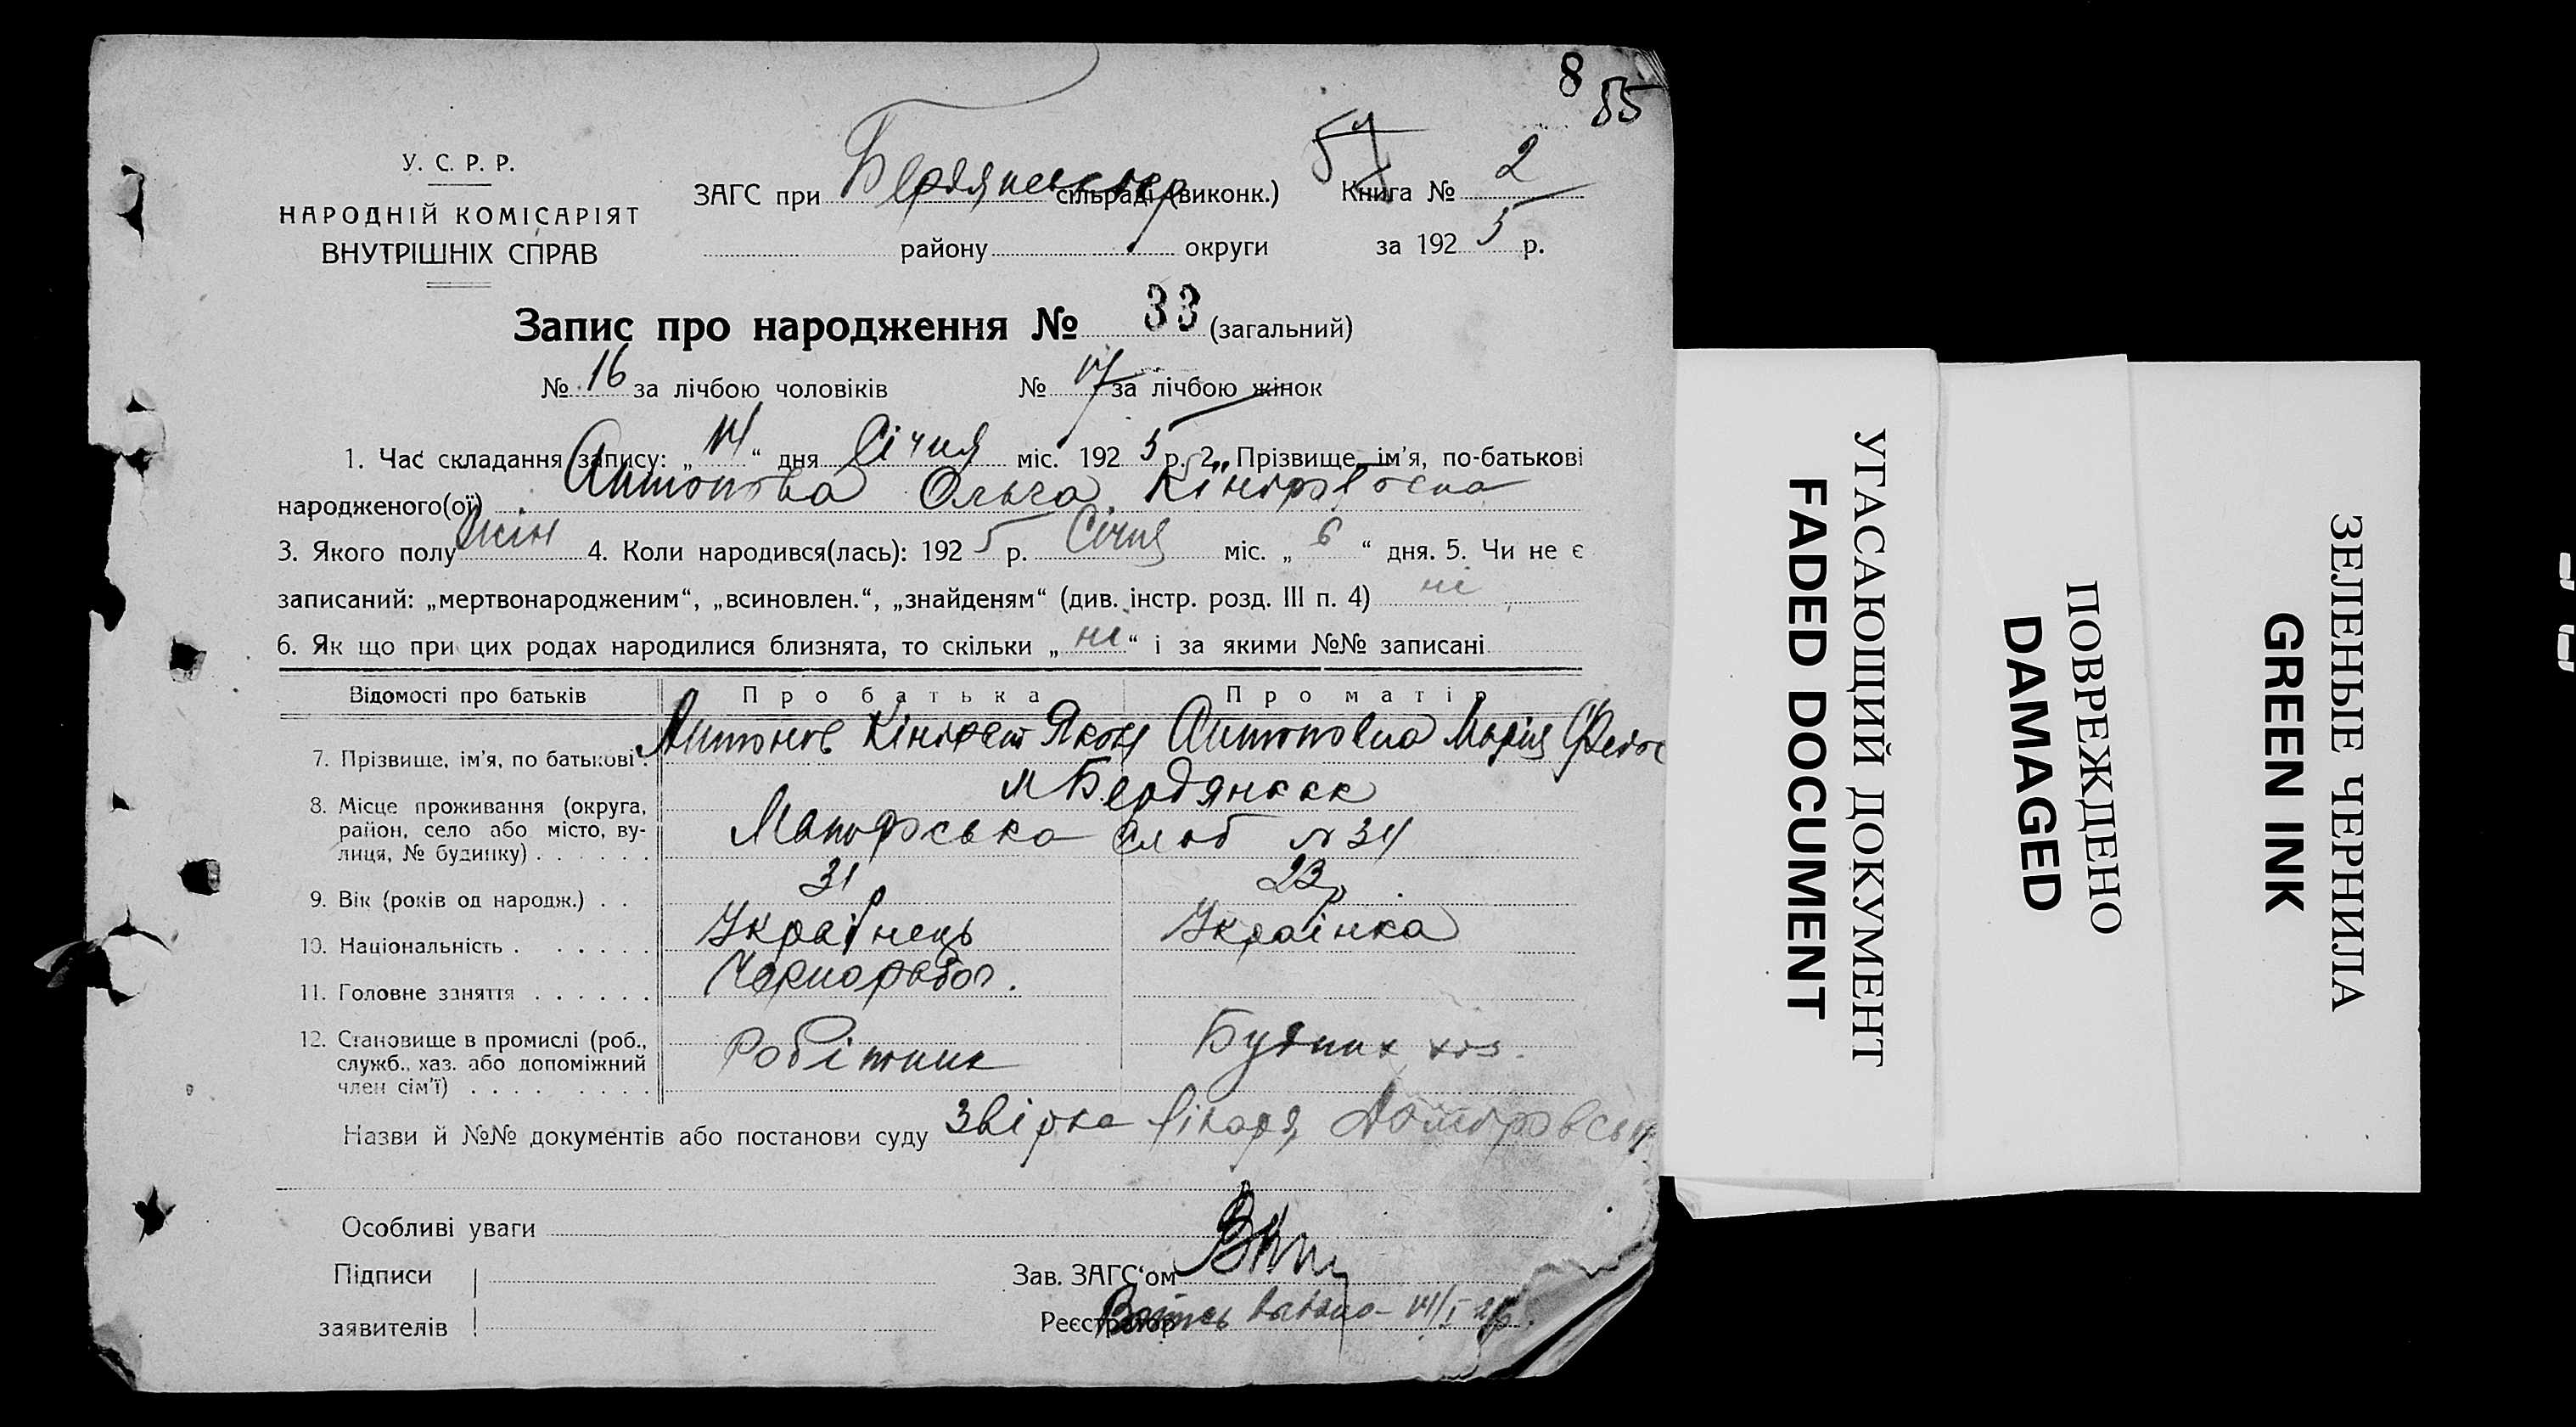 8 55
57
У. С. Р. Р.
НАРОДНІЙ КОМІСАРІЯТ
ВНУТРІШНІХ СПРАВ
ЗАГС при Бердянськ сільраді (виконк.) Книга № 2
району округи за 1925 р.
Запис про народження № 33 (загальний)
№ 16 за лічбою чоловіків № 17 за лічбою жінок
1. Час складання запису: „14“ дня Січня міс. 1925 р. 2. Прізвище, ім'я, по-батькові
народженого(ої) Антонова Ольга
3. Якого полу жін 4. Коли народився(лась): 1925 р. Січня міс. „6“ дня. 5. Чи не є
записаний: „мертвонародженим“, „всиновлен.“, „знайденям“ (див. інстр. розд. III п. 4) ні
6. Як що при цих родах народилися близнята, то скільки „ні“ і за якими №№ записані
Відомості про батьків Про батька Про матір
7. Прізвище, ім'я, по батькові: Антонов Кіндрат Яков Антонова Марія Федос
8. Місце проживання (округа, район, село або місто, вулиця, № будинку) м Бердянськ
слоб № 34
9. Вік (років од народж.) 31 23
10. Національність Українець Українка
11. Головне заняття Чернорабоч.
12. Становище в промислі (роб., служб., хаз. або допоміжний член сім'ї) Робітник Будник хоз.
Назви й №№ документів або постанови суду лікаря
Особливі уваги
Підписи заявителів
Зав. ЗАГС'ом
Реєстратор
14/I 25
УГАСАЮЩИЙ ДОКУМЕНТ
FADED DOCUMENT
ПОВРЕЖДЕНО
DAMAGED
ЗЕЛЕНЫЕ ЧЕРНИЛА
GREEN INK